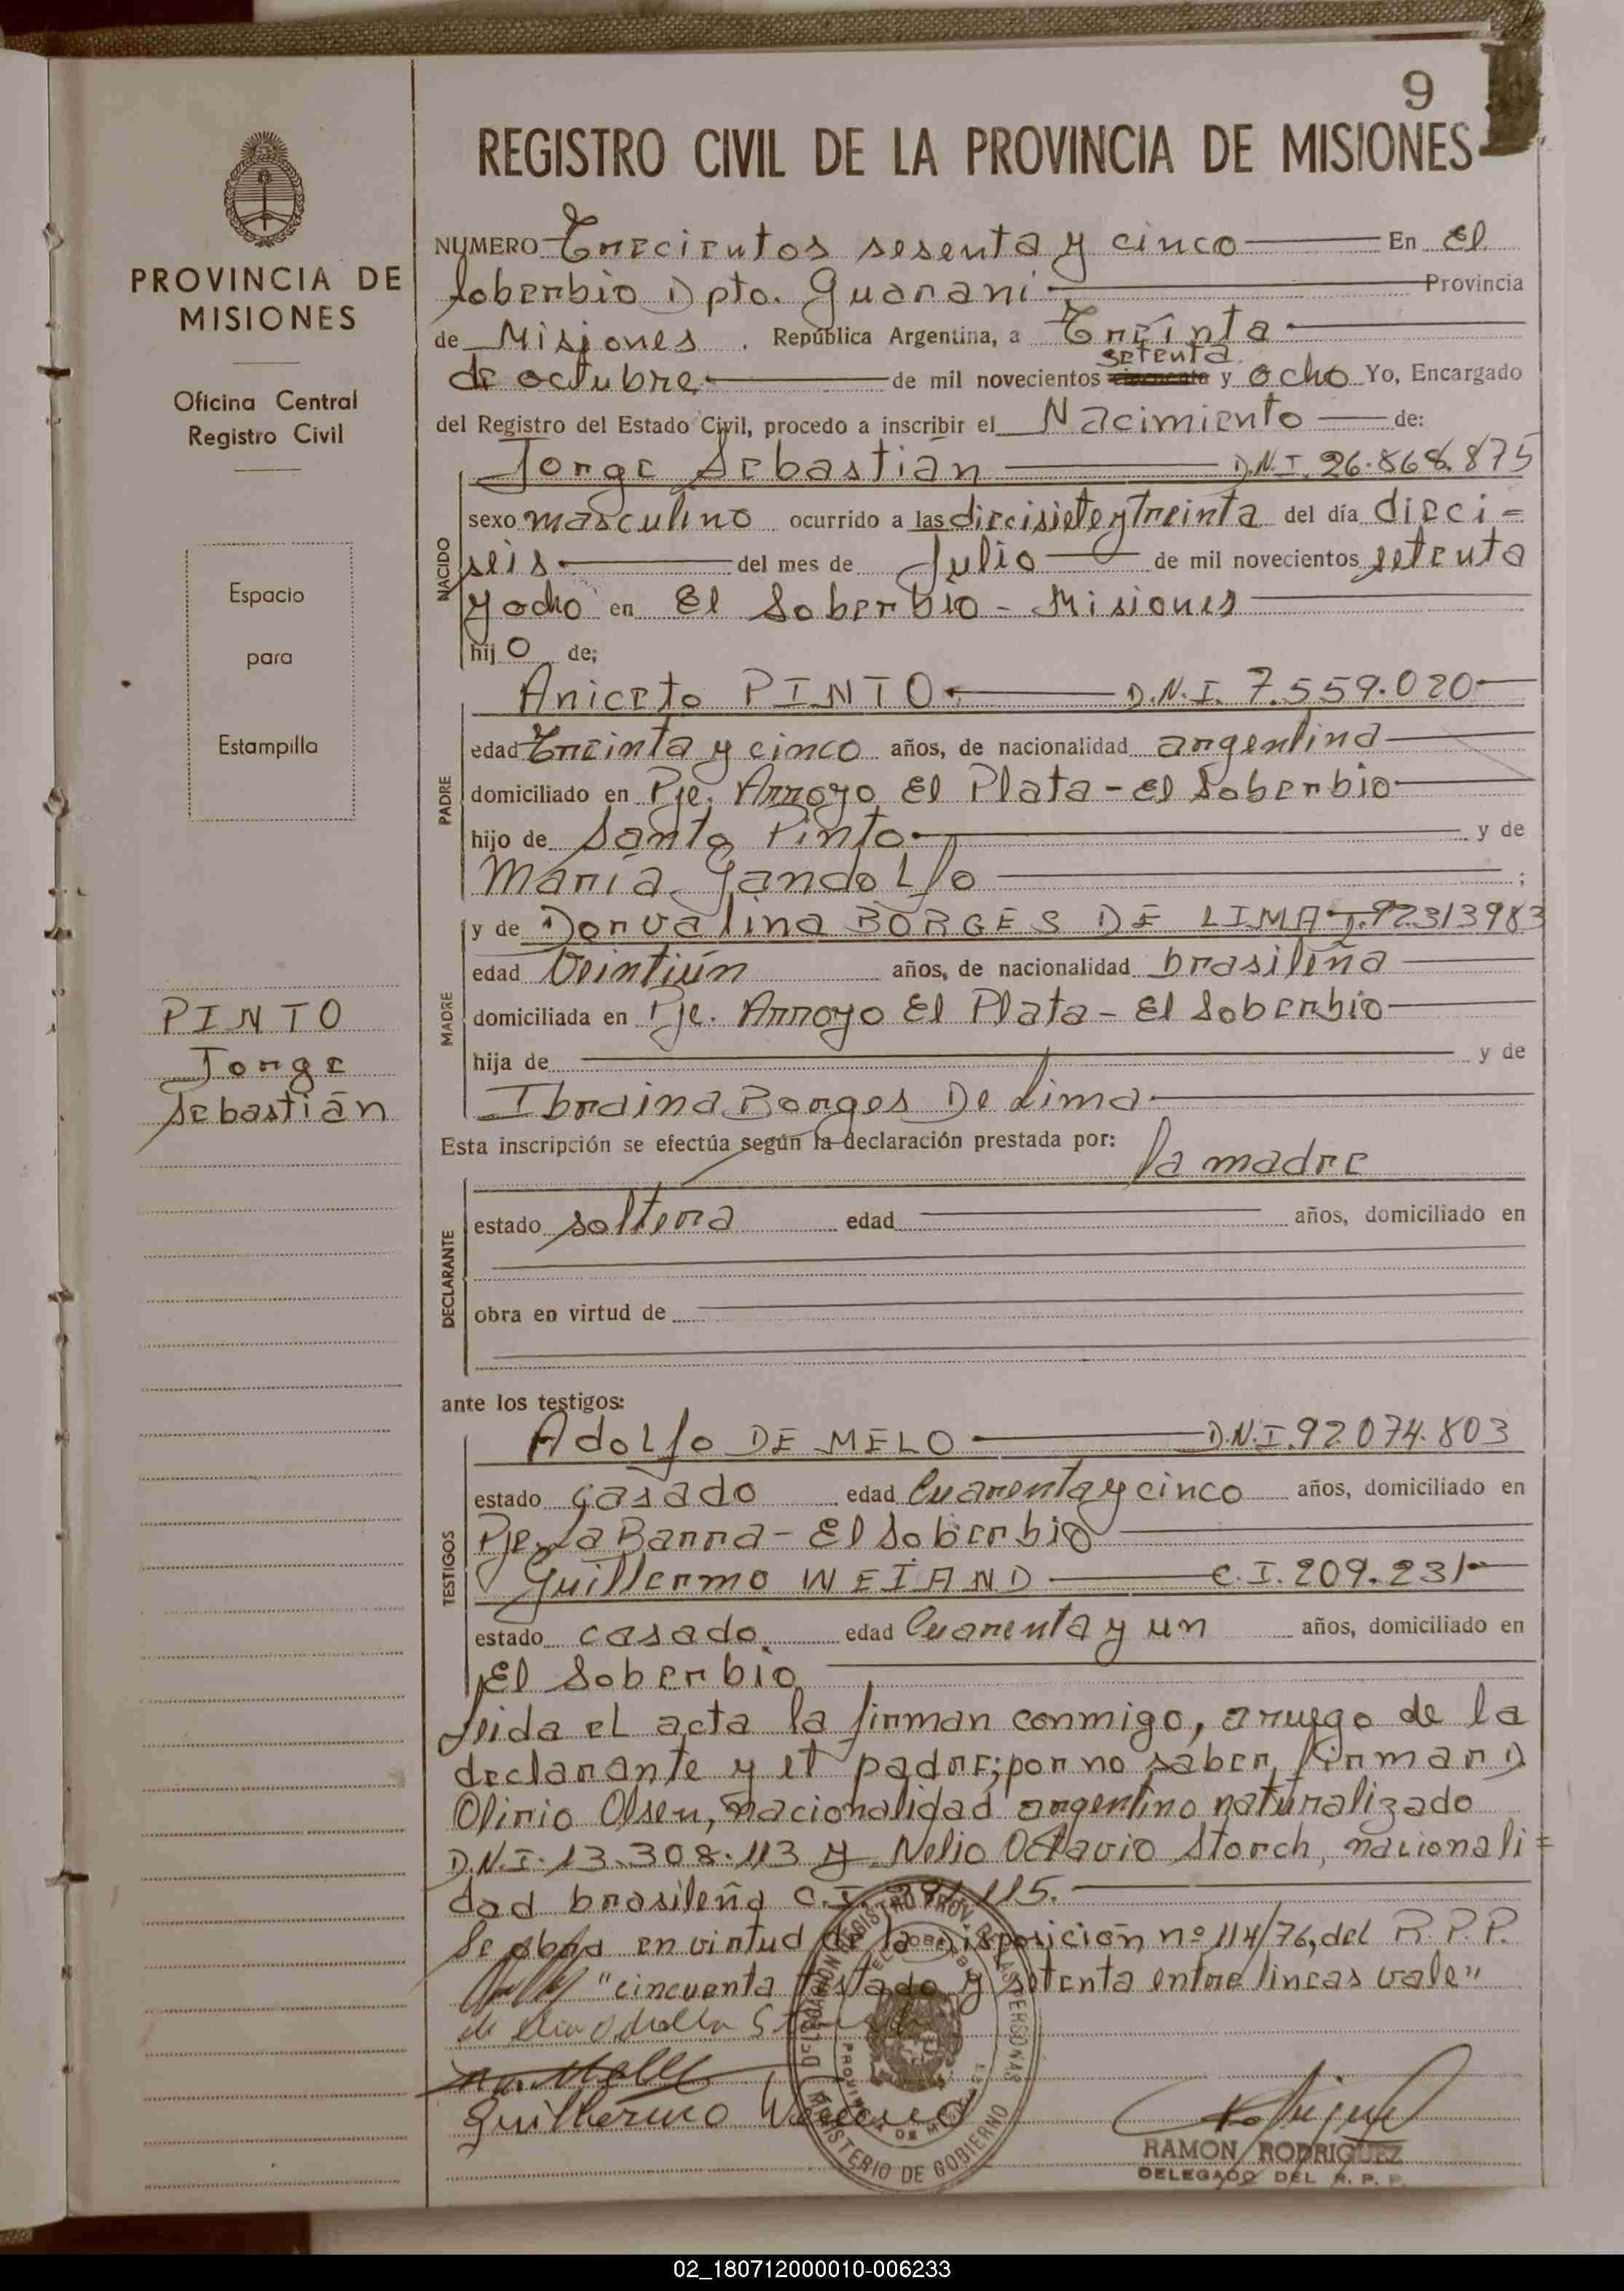 9
REGISTRO CIVIL DE LA PROVINCIA DE MISIONES
PROVINCIA DE
MISIONES
Oficina Central
Registro Civil
Espacio
para
Estampilla
PINTO
Jorge
Sebastián
NUMERO Trecientos sesenta y cinco En El
Soberbio Dpto. Guarani Provincia
de Misiones. República Argentina, a Treinta
de octubre de mil novecientos cincuenta setenta y ocho Yo, Encargado
del Registro del Estado Civil, procedo a inscribir el Nacimiento de:
Jorge Sebastián D.N.I. 26.868.875
NACIDO
sexo masculino ocurrido a las diecisiete y treinta del día dieci=
seis del mes de Julio de mil novecientos setenta
y ocho en El Soberbio - Misiones
hij o de;
PADRE
Aniceto PINTO D.N.I. 7.559.020
edad Treinta y cinco años, de nacionalidad argentina
domiciliado en Pje. Arroyo El Plata - El Soberbio
hijo de Santo Pinto y de
María Gandolfo ;
MADRE
y de Dorvalina BORGES DE LIMA 92313983
edad Veintiún años, de nacionalidad brasileña
domiciliada en Pje. Arroyo El Plata - El Soberbio
hija de y de
Ibraina Borges De Lima
Esta inscripción se efectúa según la declaración prestada por: la madre
DECLARANTE
estado soltera edad años, domiciliado en
obra en virtud de
ante los testigos:
TESTIGOS
Adolfo DE MELO D.N.I. 92.074.803
estado casado edad Cuarenta y cinco años, domiciliado en
Pje. La Barra - El Soberbio
Guillermo WEIAND C.I. 209.231
estado casado edad Cuarenta y un años, domiciliado en
El Soberbio
Leida el acta la firman conmigo, a ruego de la
declarante y el padre; por no saber firmar D
Olirio Olsen, nacionalidad argentino naturalizado
D.N.I. 13.308.113 y Nelio Octavio Storch, nacionali=
dad brasileña C.I. 115.
Se obra en virtud de la Disposición nº 114/76, del R.P.P.
"cincuenta testado y setenta entre lineas vale"
Guilhermo
DELEGACION REGISTRO PROV. DE LAS PERSONAS
MINISTERIO DE GOBIERNO
RAMON RODRIGUEZ
DELEGADO DEL R. P. P.
02_180712000010-006233